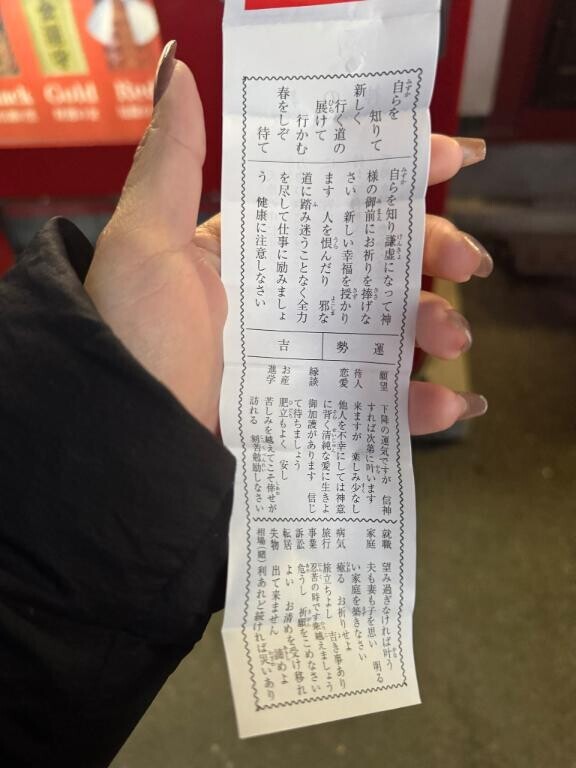 Gold
自らを
知りて
新しく
行く道の
展けて
行かむ
春をしぞ
待て
自らを知り謙虚になって神
様の御前にお祈りを捧げな
さい 新しい幸福を授かり
ます 人を恨んだり 邪な
道に踏み迷うことなく全力
を尽して仕事に励みましょ
う 健康に注意しなさい
運勢
吉
願望 下降の運気ですが 信神
すれば次第に叶います
待人 来ますが 楽しみ少なし
恋愛 他人を不幸にしては神意
に背く清純な愛に生きよ
縁談 御加護があります 信じ
て待ちましょう
お産 肥立もよく 安し
進学 苦しみを越えてこそ倖せが
訪れる 刻苦勉励しなさい
就職 望み過ぎなければ叶う
家庭 夫も妻も子を思い 明る
い家庭を築きなさい
病気 癒る お祈りせよ
旅行 旅立ちよし 吉き事あり
事業 忍苦の時です乗越えましょう
訴訟 危うし 祈願をこめなさい
転居 よい お清めを受け移れ
失物 出て来ません 諦めよ
相場(賭) 利あれど続ければ災いあり